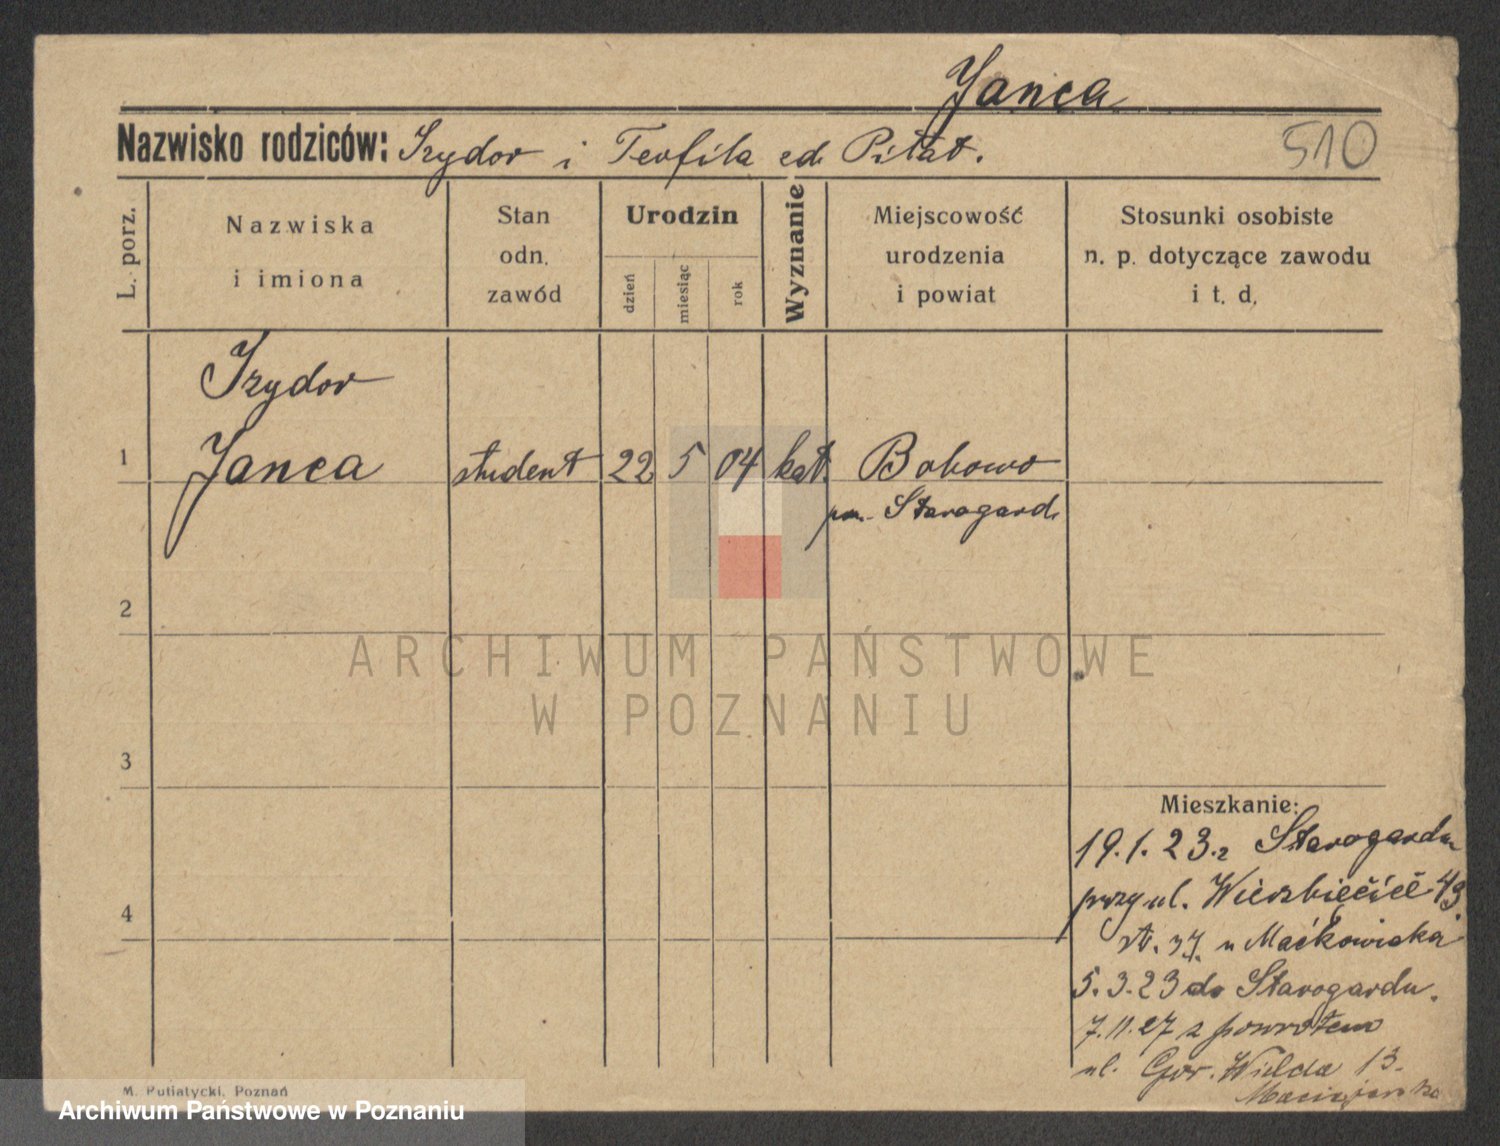 Janca
Nazwisko rodziców: Izydor i Teofila zd. Piłat.
510
L. porz.
Nazwiska
i imiona
Stan
odn.
zawód
Urodzin
dzień
miesiąc
rok
Wyznanie
Miejscowość
urodzenia
i powiat
Stosunki osobiste
n. p. dotyczące zawodu
i t. d.
Izydor
1 Janca student 22 5 04 kat. Bobowo
pow. Starogard.
2
ARCHIWUM PAŃSTWOWE
W POZNANIU
3
Mieszkanie:
19.1.23. z Starogardu
przy ul. Wierzbięcic 43.
4
u Maćkowiaka
5.3.23 do Starogardu.
7.11.27 z powrotem
ul. Gór. Wilda 13.
M. Putiatycki, Poznań
Archiwum Państwowe w Poznaniu